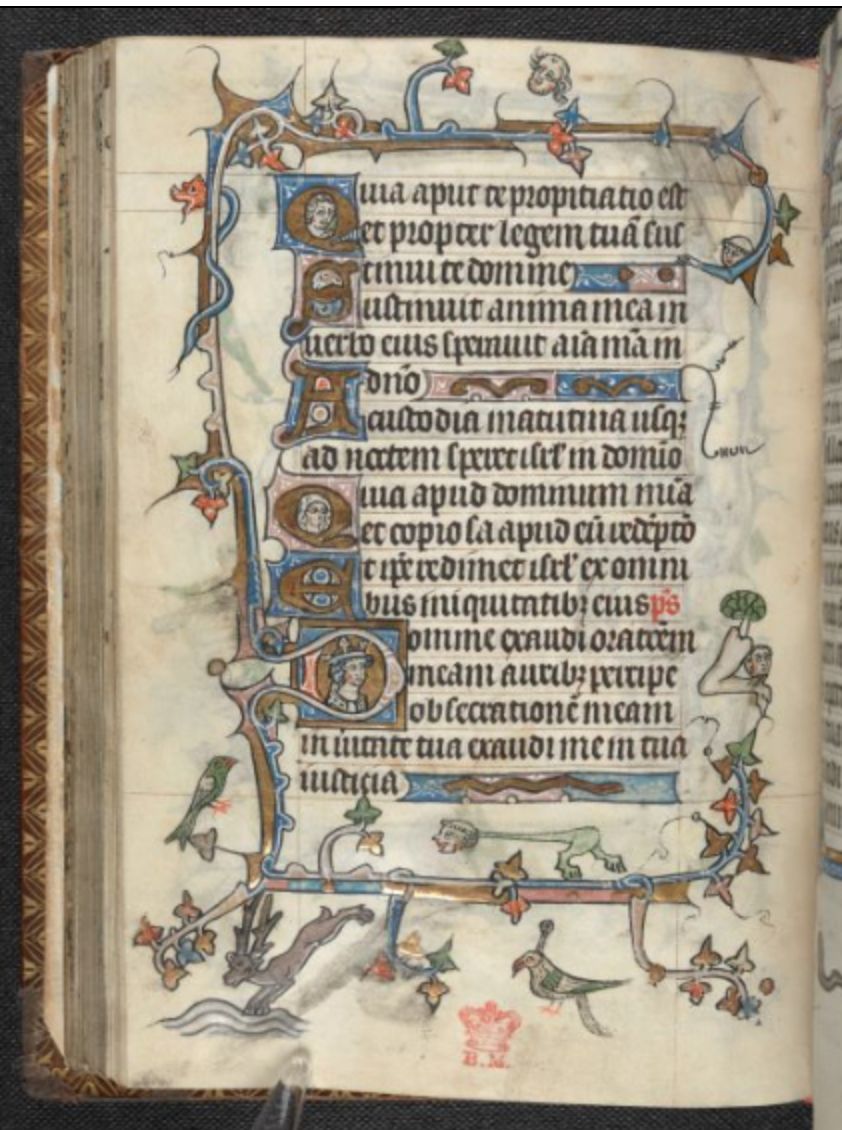 Quia aput te propitiatio est
et propter legem tuā sus
tinui te domine
Sustinuit anima mea in
uerbo eius speravit aīa mā in
dn̄o
A custodia matutina usq;
ad noctem speret isrl̄ in domīo
Quia apud dominum mīa
et copiosa apud eū redēptō
Et ip̄e redimet isrl̄ ex omni
bus iniquitatibꝫ eius ps̄
Domine exaudi oratōem
meam auribꝫ percipe
obsecrationē meam
in ueritate tua exaudi me in tua
iusticia
B.M.